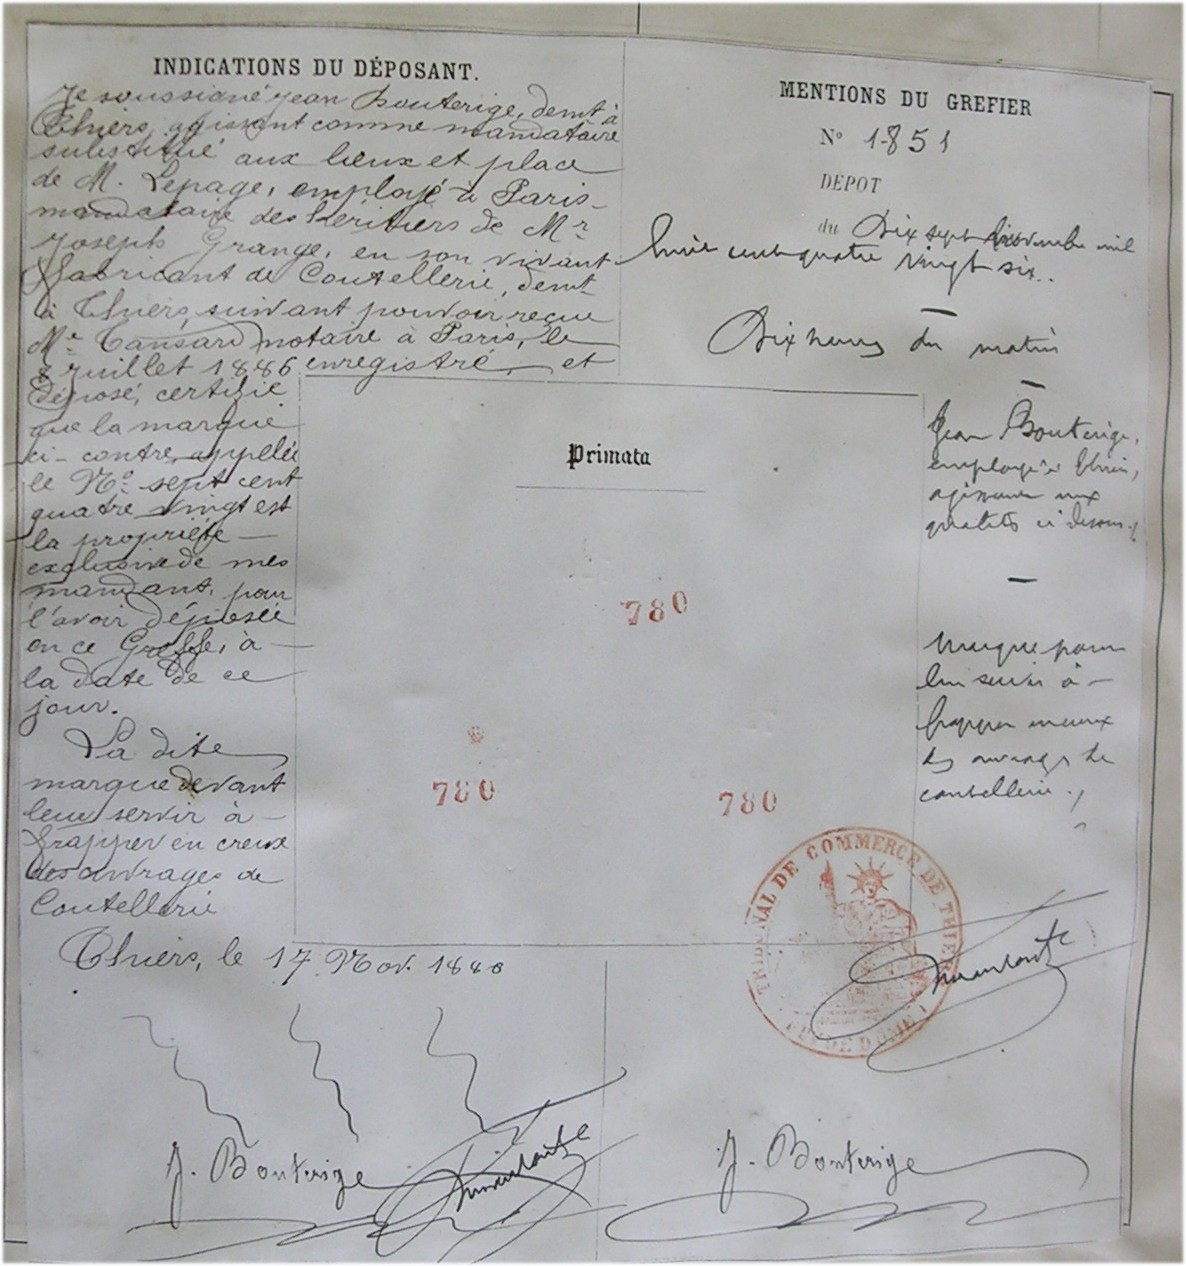 INDICATIONS DU DÉPOSANT.
Je soussigné Jean Bouterige, demt à
Thiers, agissant comme mandataire
substitué aux lieux et place
de M. Lepage, employé à Paris
mandataire des héritiers de Mr
Joseph Grange, en son vivant
fabricant de Coutellerie, demt
à Thiers, suivant pouvoir reçue
Me Tansard notaire à Paris, le
juillet 1886 enregistré, et
déposé, certifie
que la marque
ci-contre appelée
le No sept cent
quatre vingt est
la propriété
exclusive de mes
mandant, pour
l'avoir déposée
en ce Greffe, à
la date de ce
jour.
La dite
marque devant
leur servir à
frapper en creux
des ouvrages de
Coutellerie
Thiers, le 17 Nov. 1886
J. Bouterige
MENTIONS DU GREFIER
No 1851
DÉPOT
du Dix sept Novembre mil
huit cent quatre vingt six.
Dix heures du matin
Jean Bouterige,
employé à Thiers,
agissant aux
qualités ci dessus.
Marque pour
leur servir à
frapper en creux
des ouvrages de
coutellerie.
Primata
780
780
780
TRIBUNAL DE COMMERCE DE THIERS
PUY DE DOME
J. Bouterige